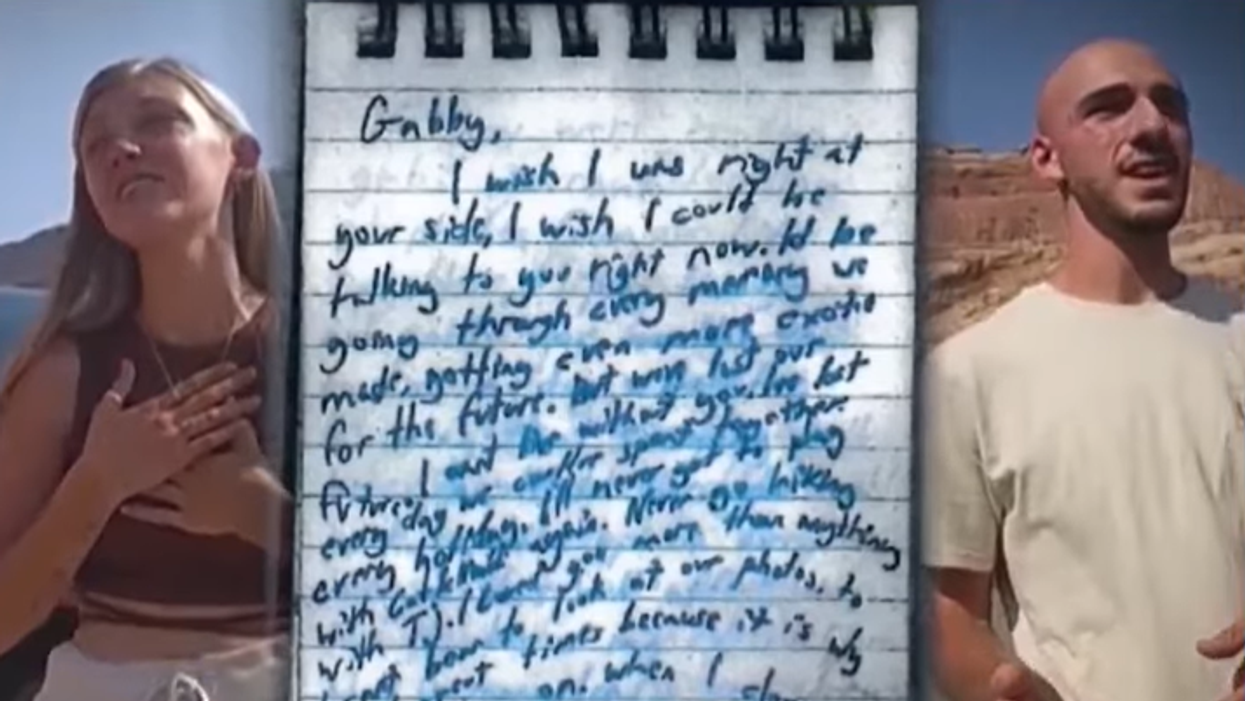 Gabby,
I wish I was right at
your side, I wish I could be
talking to you right now. Id be
going through every memory we
made, getting even more excited
for the future. But we've lost our
future. I can't live without you. I've lost
every day we could've spent together.
every holiday. I'll never get to play
with again. Never go hiking
with TJ. I loved you more than anything
bear to look at our photos, to
great times because it is why
on. when I